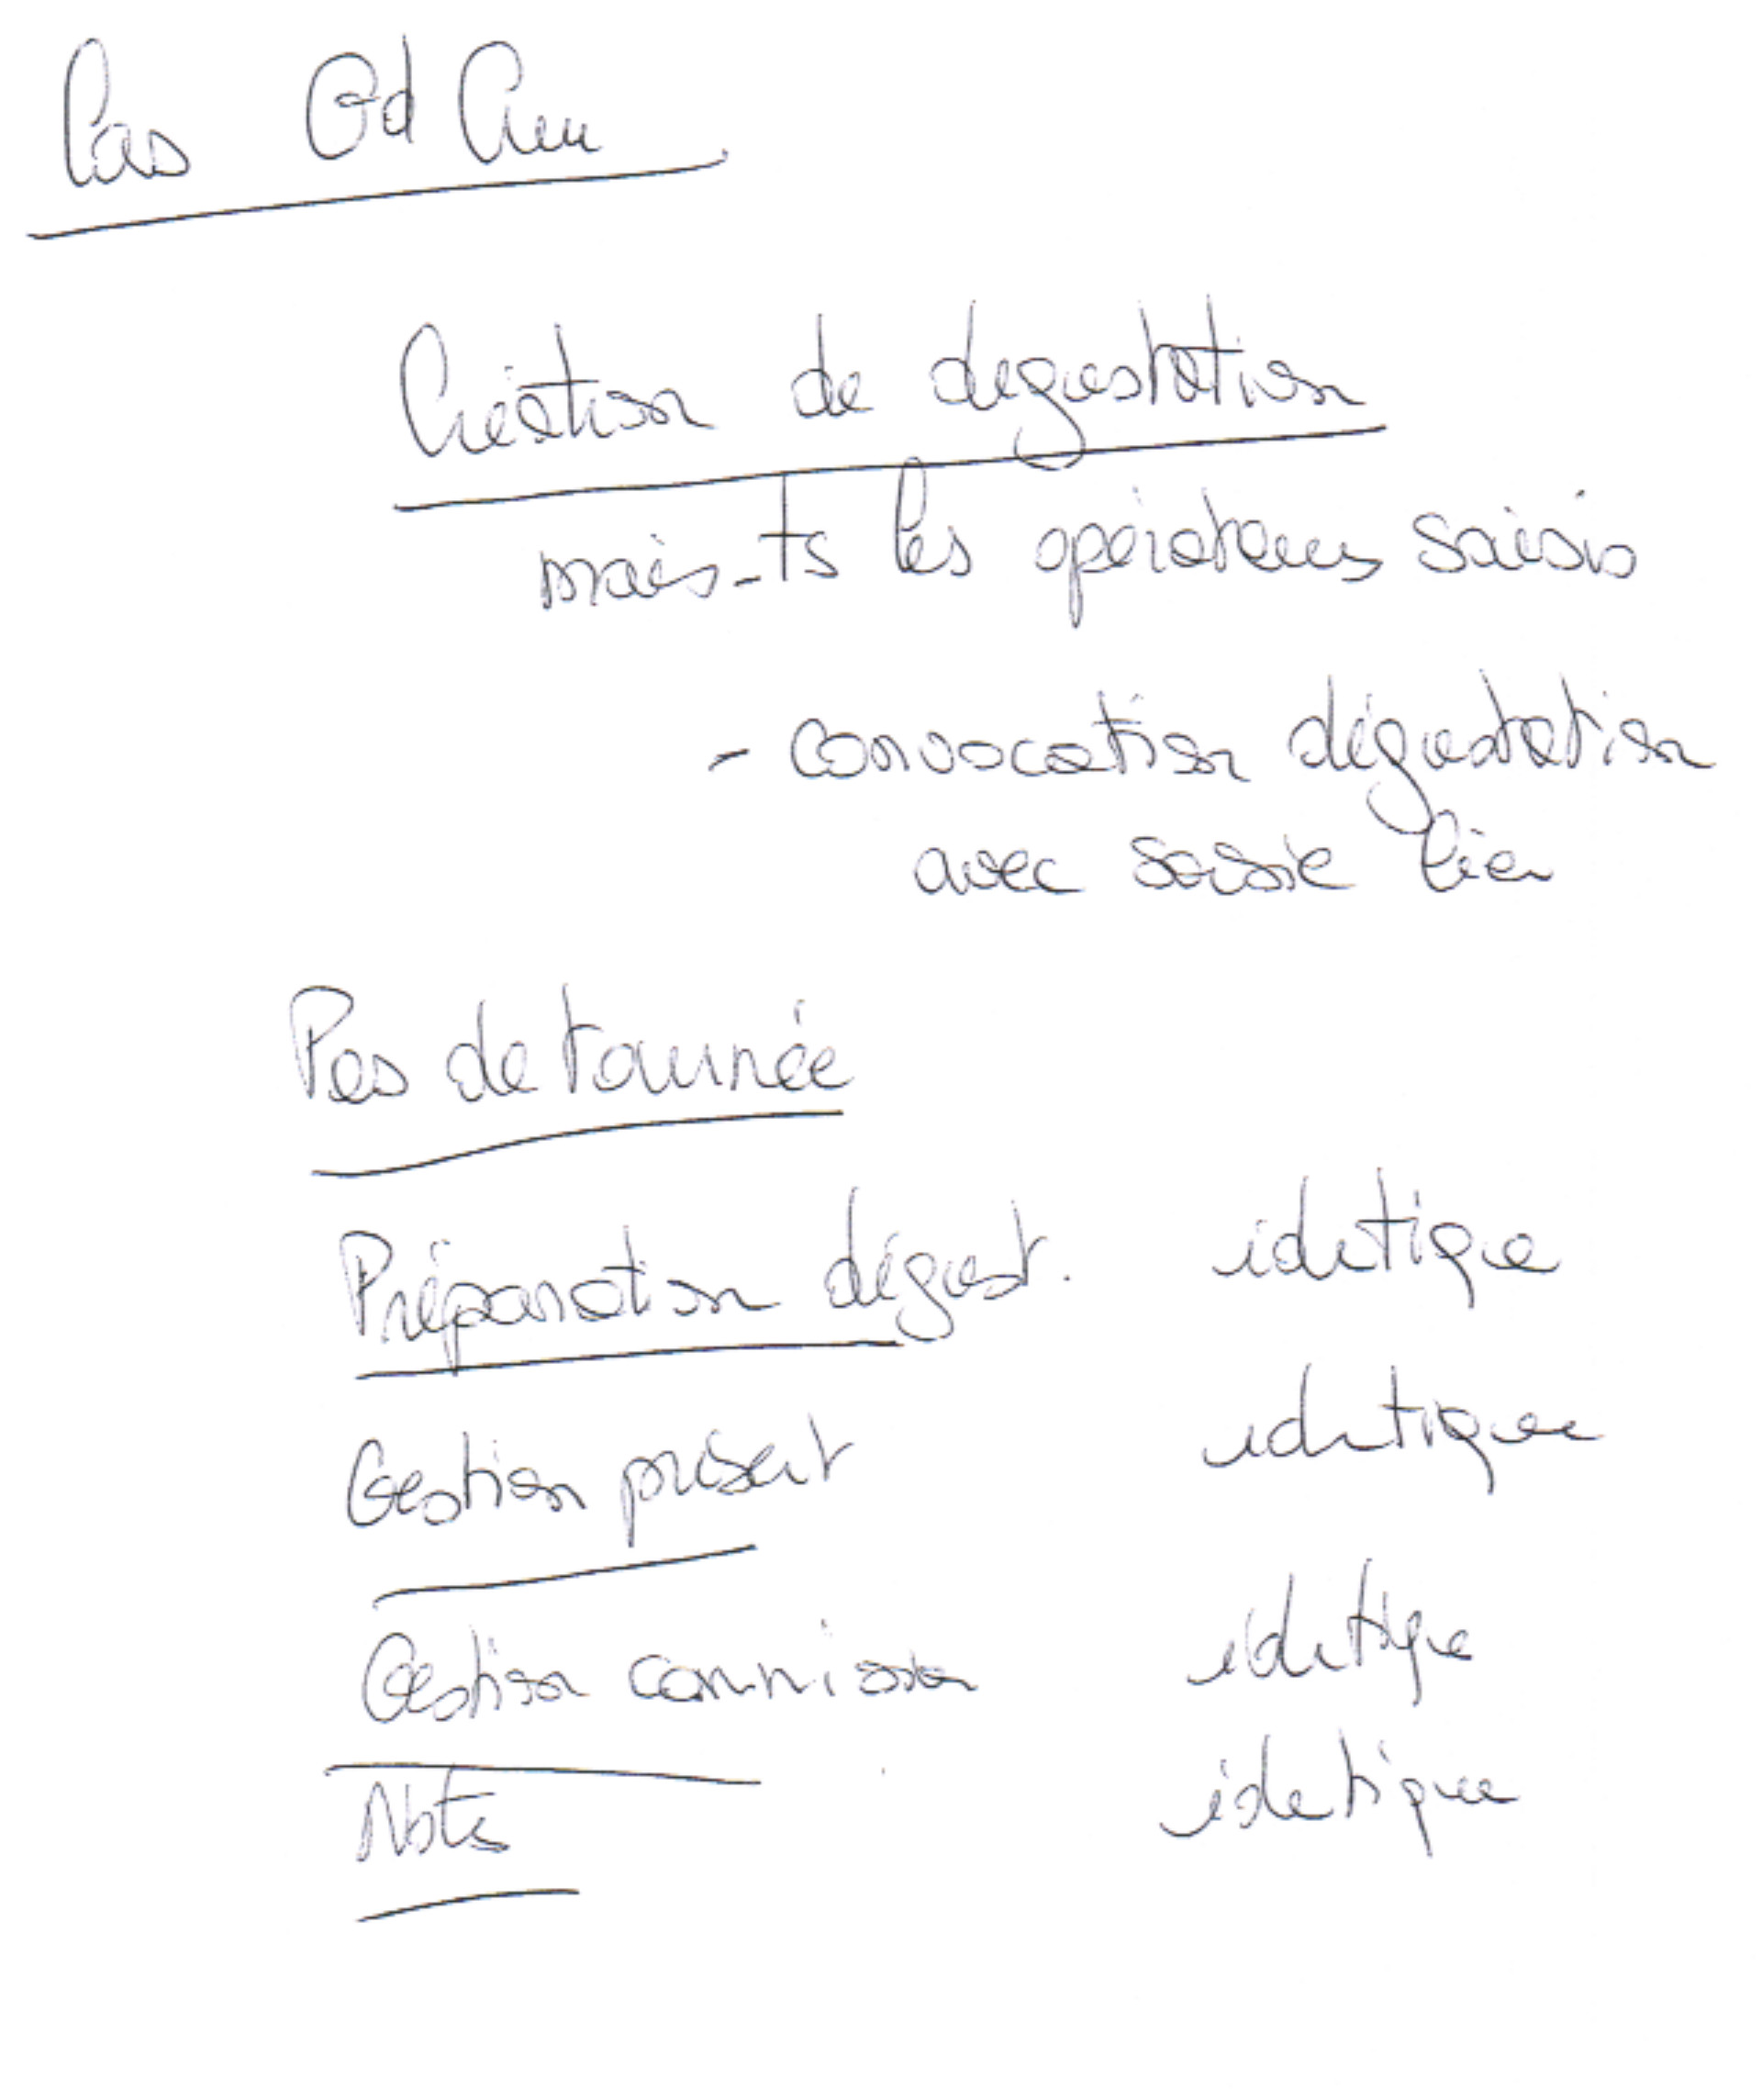 Cas Gd Cru
Création de degustation
mais - ts les opérateurs saisis
- convocation dégustation
avec saisie lieu
Pas de tournée
Préparation dégust. identique
Gestion présent identique
Gestion commission identique
Note identique